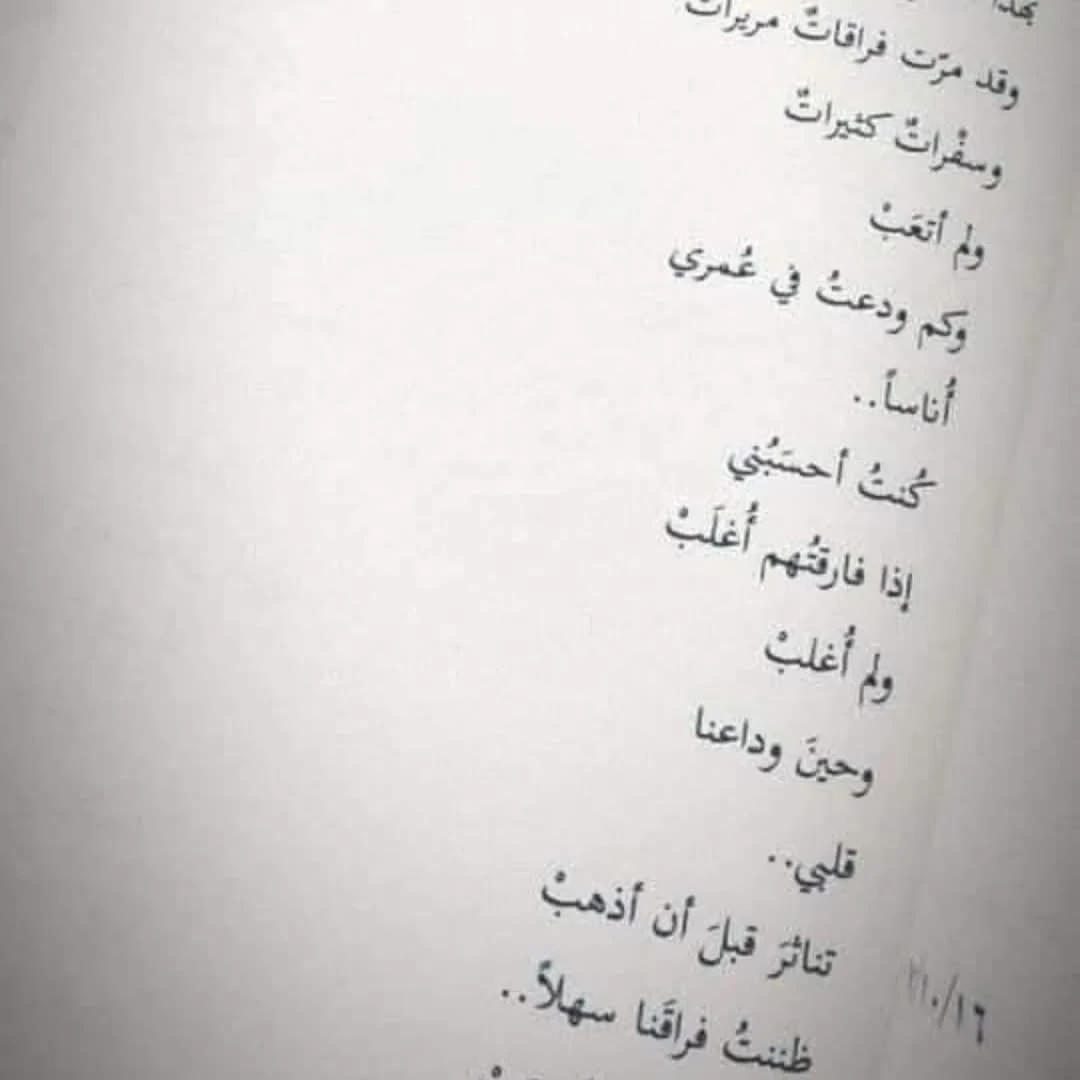 وقد مرّت فراقاتٌ مريراتٌ
وسفْراتٌ كثيراتٌ
ولم أتعَبْ
وكم ودعتُ في عُمري
أُناساً..
كُنتُ أحسَبُني
إذا فارقتُهم أُغلَبْ
ولم أُغلبْ
وحينَ وداعنا
قلبي..
تناثرَ قبلَ أن أذهبْ
ظننتُ فراقَنا سهلاً..